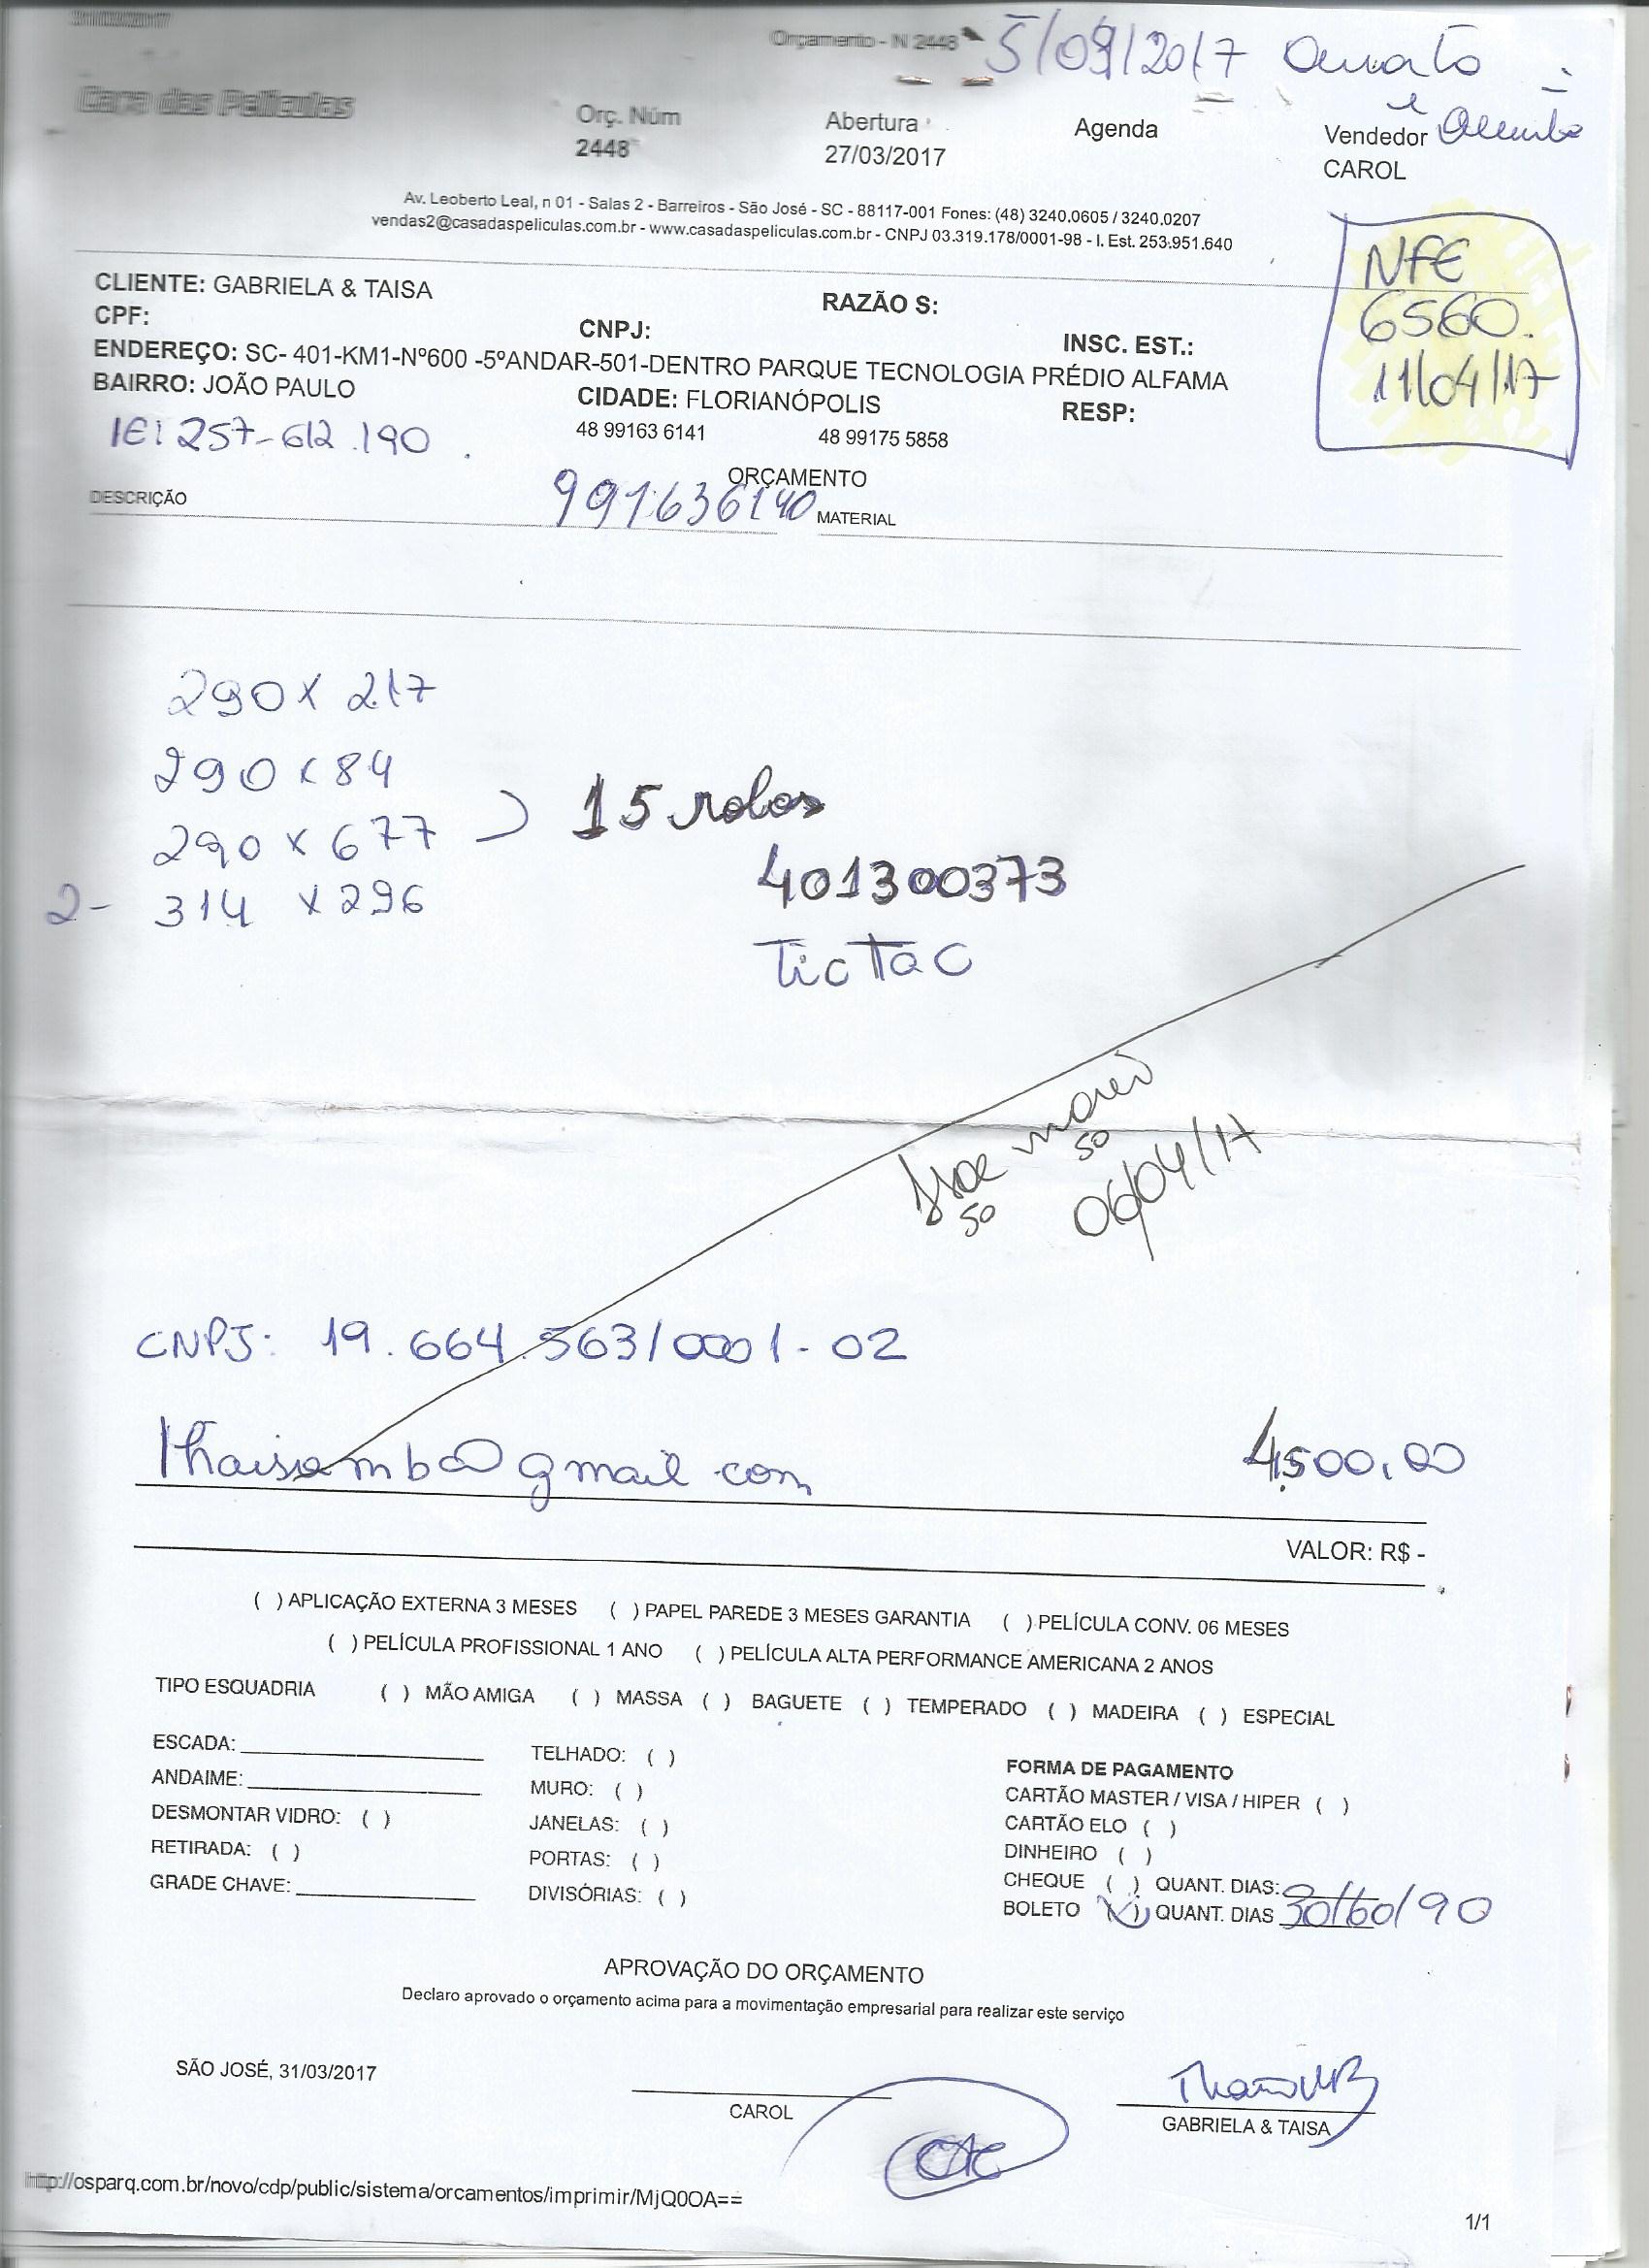 Orçamento - N 2448
5/09/2017
Casa das Películas
Orç. Núm
2448
Abertura
27/03/2017
Agenda
Vendedor
CAROL
Av. Leoberto Leal, n 01 - Salas 2 - Barreiros - São José - SC - 88117-001 Fones: (48) 3240.0605 / 3240.0207
vendas2@casadaspeliculas.com.br - www.casadaspeliculas.com.br - CNPJ 03.319.178/0001-98 - I. Est. 253.951.640
NFE
6560.
11/04/17
CLIENTE: GABRIELA & TAISA
RAZÃO S:
CPF:
CNPJ:
INSC. EST.:
ENDEREÇO: SC- 401-KM1-Nº600 -5ºANDAR-501-DENTRO PARQUE TECNOLOGIA PRÉDIO ALFAMA
BAIRRO: JOÃO PAULO
CIDADE: FLORIANÓPOLIS
RESP:
48 99163 6141
48 99175 5858
IE: 257-612.190
ORÇAMENTO
DESCRIÇÃO
991636140
MATERIAL
290 x 217
290 x 84
290 x 677
15 rolos
2- 314 x 296
401300373
TicTac
50
50
06/04/17
CNPJ: 19.664.563/0001-02
thaissamb@gmail.com
4.500,00
VALOR: R$ -
( ) APLICAÇÃO EXTERNA 3 MESES ( ) PAPEL PAREDE 3 MESES GARANTIA ( ) PELÍCULA CONV. 06 MESES
( ) PELÍCULA PROFISSIONAL 1 ANO ( ) PELÍCULA ALTA PERFORMANCE AMERICANA 2 ANOS
TIPO ESQUADRIA ( ) MÃO AMIGA ( ) MASSA ( ) BAGUETE ( ) TEMPERADO ( ) MADEIRA ( ) ESPECIAL
ESCADA:
ANDAIME:
DESMONTAR VIDRO: ( )
RETIRADA: ( )
GRADE CHAVE:
TELHADO: ( )
MURO: ( )
JANELAS: ( )
PORTAS: ( )
DIVISÓRIAS: ( )
FORMA DE PAGAMENTO
CARTÃO MASTER / VISA / HIPER ( )
CARTÃO ELO ( )
DINHEIRO ( )
CHEQUE ( ) QUANT. DIAS:
BOLETO (X) QUANT. DIAS 30/60/90
APROVAÇÃO DO ORÇAMENTO
Declaro aprovado o orçamento acima para a movimentação empresarial para realizar este serviço
SÃO JOSÉ, 31/03/2017
CAROL
GABRIELA & TAISA
http://osparq.com.br/novo/cdp/public/sistema/orcamentos/imprimir/MjQ0OA==
1/1